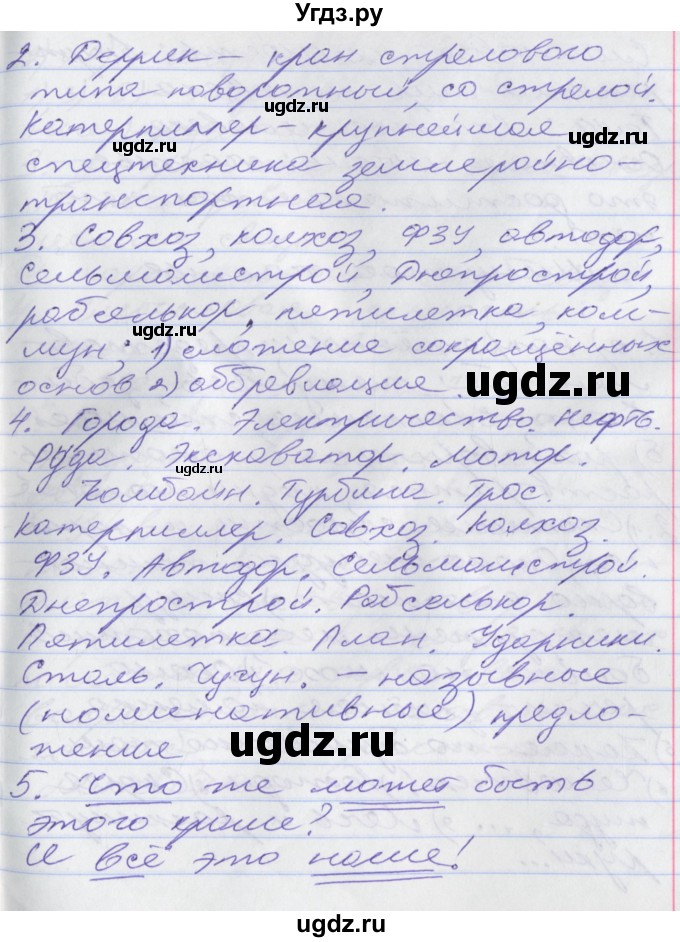 Угдз.ру
2. Деррик – кран стрелового
типа поворотный, со стрелой.
Катерпиллер – крупнейшая
спецтехника землеройно-
транспортная.
3. Совхоз, колхоз, ФЗУ, автодор,
Сельмашстрой, Днепрострой,
рабселькор, пятилетка, ком-
мун, : 1) сложение сокращённых
основ 2) аббревиация.
4. Города. Электричество. Нефть.
Руда. Экскаватор. Мотор.
Комбайн. Турбина. Трос.
Катерпиллер. Совхоз. Колхоз.
ФЗУ. Автодор. Сельмашстрой.
Днепрострой. Рабселькор.
Пятилетка. План. Ударники.
Сталь. Чугун. – назывные
(номинативные) предло-
жения
5. Что же может быть
этого краше?
И всё это наше!
ugdz.ru
ugdz.ru
ugdz.ru
ugdz.ru
ugdz.ru
ugdz.ru
ugdz.ru
ugdz.ru
ugdz.ru
ugdz.ru